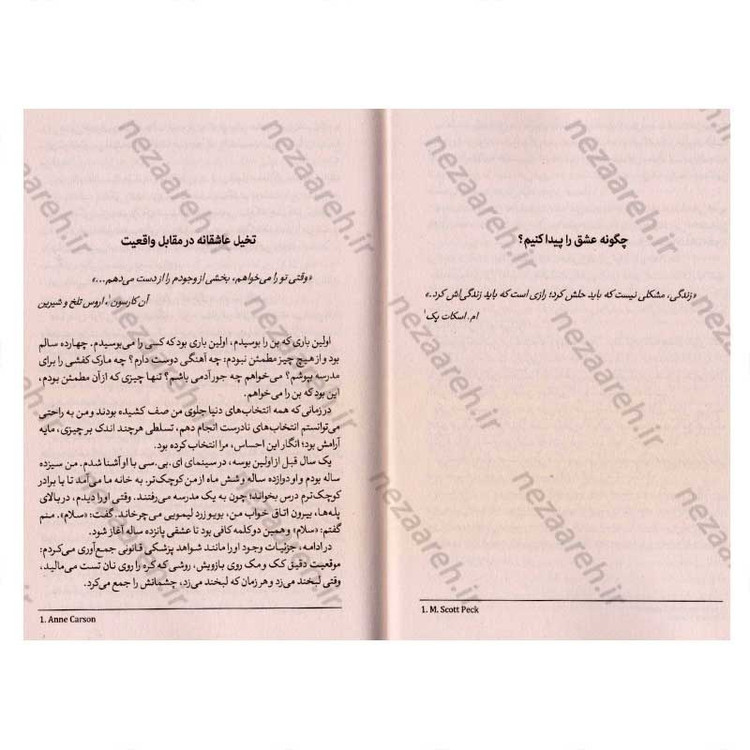 چگونه عشق را پیدا کنیم؟
«زندگی، مشکلی نیست که باید حلش کرد؛ رازی است که باید زندگی‌اش کرد.»
ام. اسکات پک¹
1. M. Scott Peck
تخیل عاشقانه در مقابل واقعیت
«وقتی تو را می‌خواهم، بخشی از وجودم را از دست می‌دهم...»
آن کارسون¹، اروس تلخ و شیرین
اولین باری که بن را بوسیدم، اولین باری بود که کسی را می‌بوسیدم. چهارده سالم
بود و از هیچ چیز مطمئن نبودم؛ چه آهنگی دوست دارم؟ چه مارک کفشی را برای
مدرسه بپوشم؟ می‌خواهم چه جور آدمی باشم؟ تنها چیزی که از آن مطمئن بودم،
این بود که بن را می‌خواهم.
در زمانی که همه انتخاب‌های دنیا جلوی من صف کشیده بودند و من به راحتی
می‌توانستم انتخاب‌های نادرست انجام دهم، تسلطی هرچند اندک بر چیزی، مایه
آرامش بود؛ انگار این احساس، مرا انتخاب کرده بود.
یک سال قبل از اولین بوسه، در سینمای ای.بی.سی با او آشنا شدم. من سیزده
ساله بودم و او دوازده ساله و شش ماه از من کوچک‌تر. به خانه ما می‌آمد تا با برادر
کوچک‌ترم درس بخواند؛ چون به یک مدرسه می‌رفتند. وقتی او را دیدم، در بالای
پله‌ها، بیرون اتاق خواب من، یویو زرد لیمویی می‌چرخاند. گفت: «سلام». منم
گفتم: «سلام» و همین دو کلمه کافی بود تا عشقی پانزده ساله آغاز شود.
در ادامه، جزئیات وجود او را مانند شواهد پزشکی قانونی جمع‌آوری می‌کردم:
موقعیت دقیق کک و مک روی بازویش، روشی که کره را روی نان تست می‌مالید،
وقتی لبخند می‌زد و هر زمان که لبخند می‌زد، چشمانش را جمع می‌کرد.
1. Anne Carson
nezaareh.ir